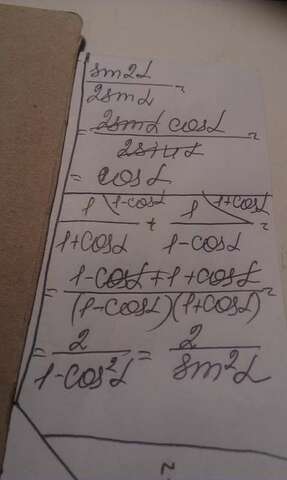 sin2α/2sinα =
= 2sinα cosα/2sinα =
= cosα
1 \1-cosα/1+cosα + 1 \1+cosα/1-cosα =
= 1-cosα+1+cosα/(1-cosα)(1+cosα) =
= 2/1-cos²α = 2/sin²α